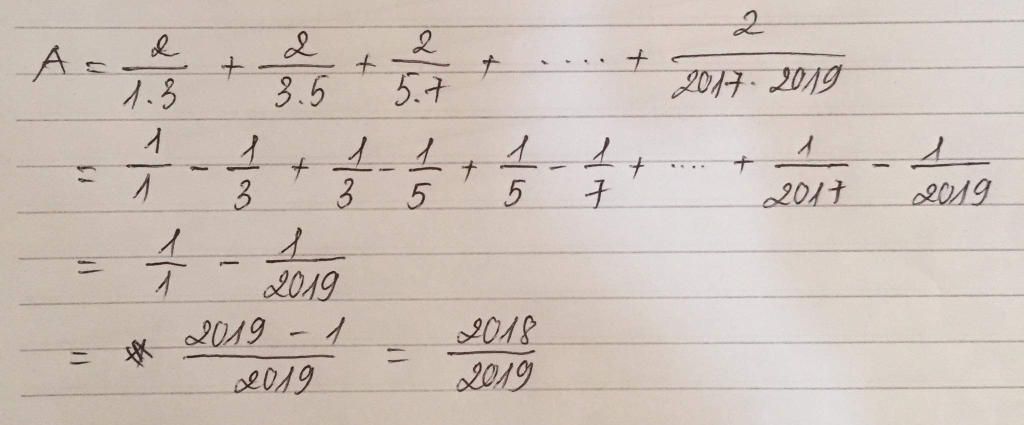 A = 2/1.3 + 2/3.5 + 2/5.7 + ..... + 2/2017.2019
= 1/1 - 1/3 + 1/3 - 1/5 + 1/5 - 1/7 + .... + 1/2017 - 1/2019
= 1/1 - 1/2019
= 2019 - 1/2019 = 2018/2019